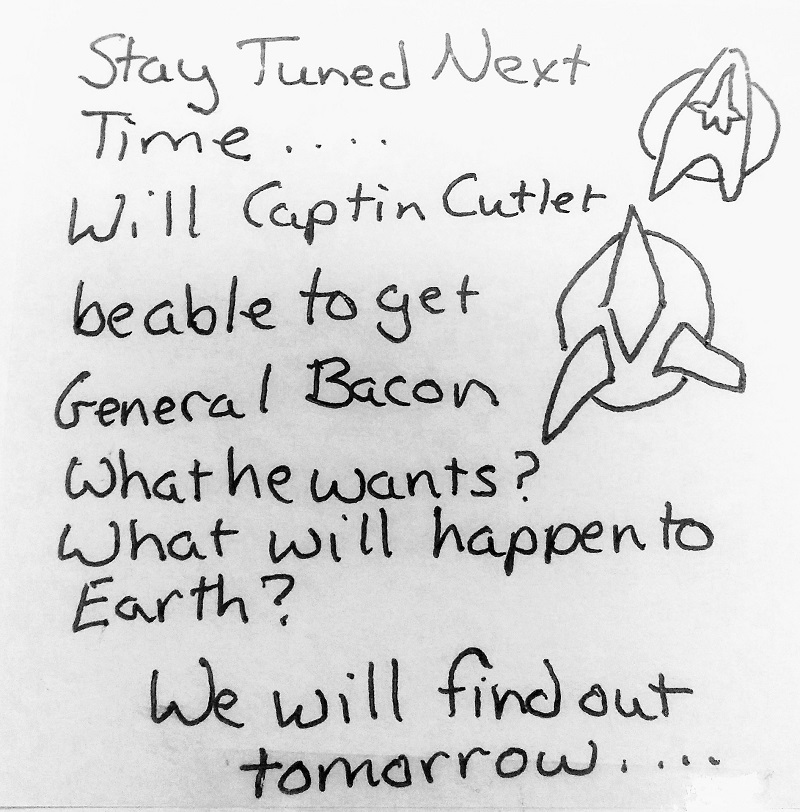 Stay Tuned Next
Time....
Will Captin Cutlet
be able to get
General Bacon
What he wants?
What will happen to
Earth?
We will find out
tomorrow....